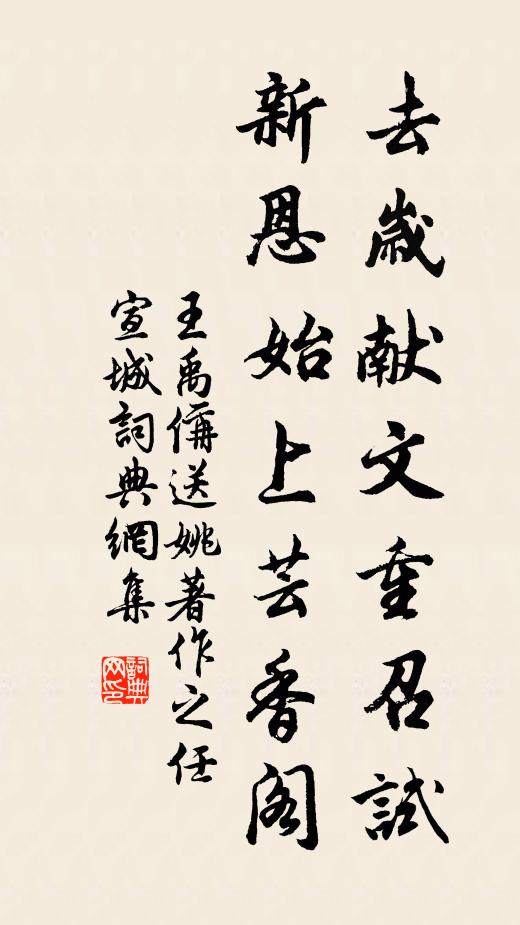 去歳献文重召試
新恩始上芸香阁
王禹偁送姚著作之任
宣城詞典網集
詞典
网印